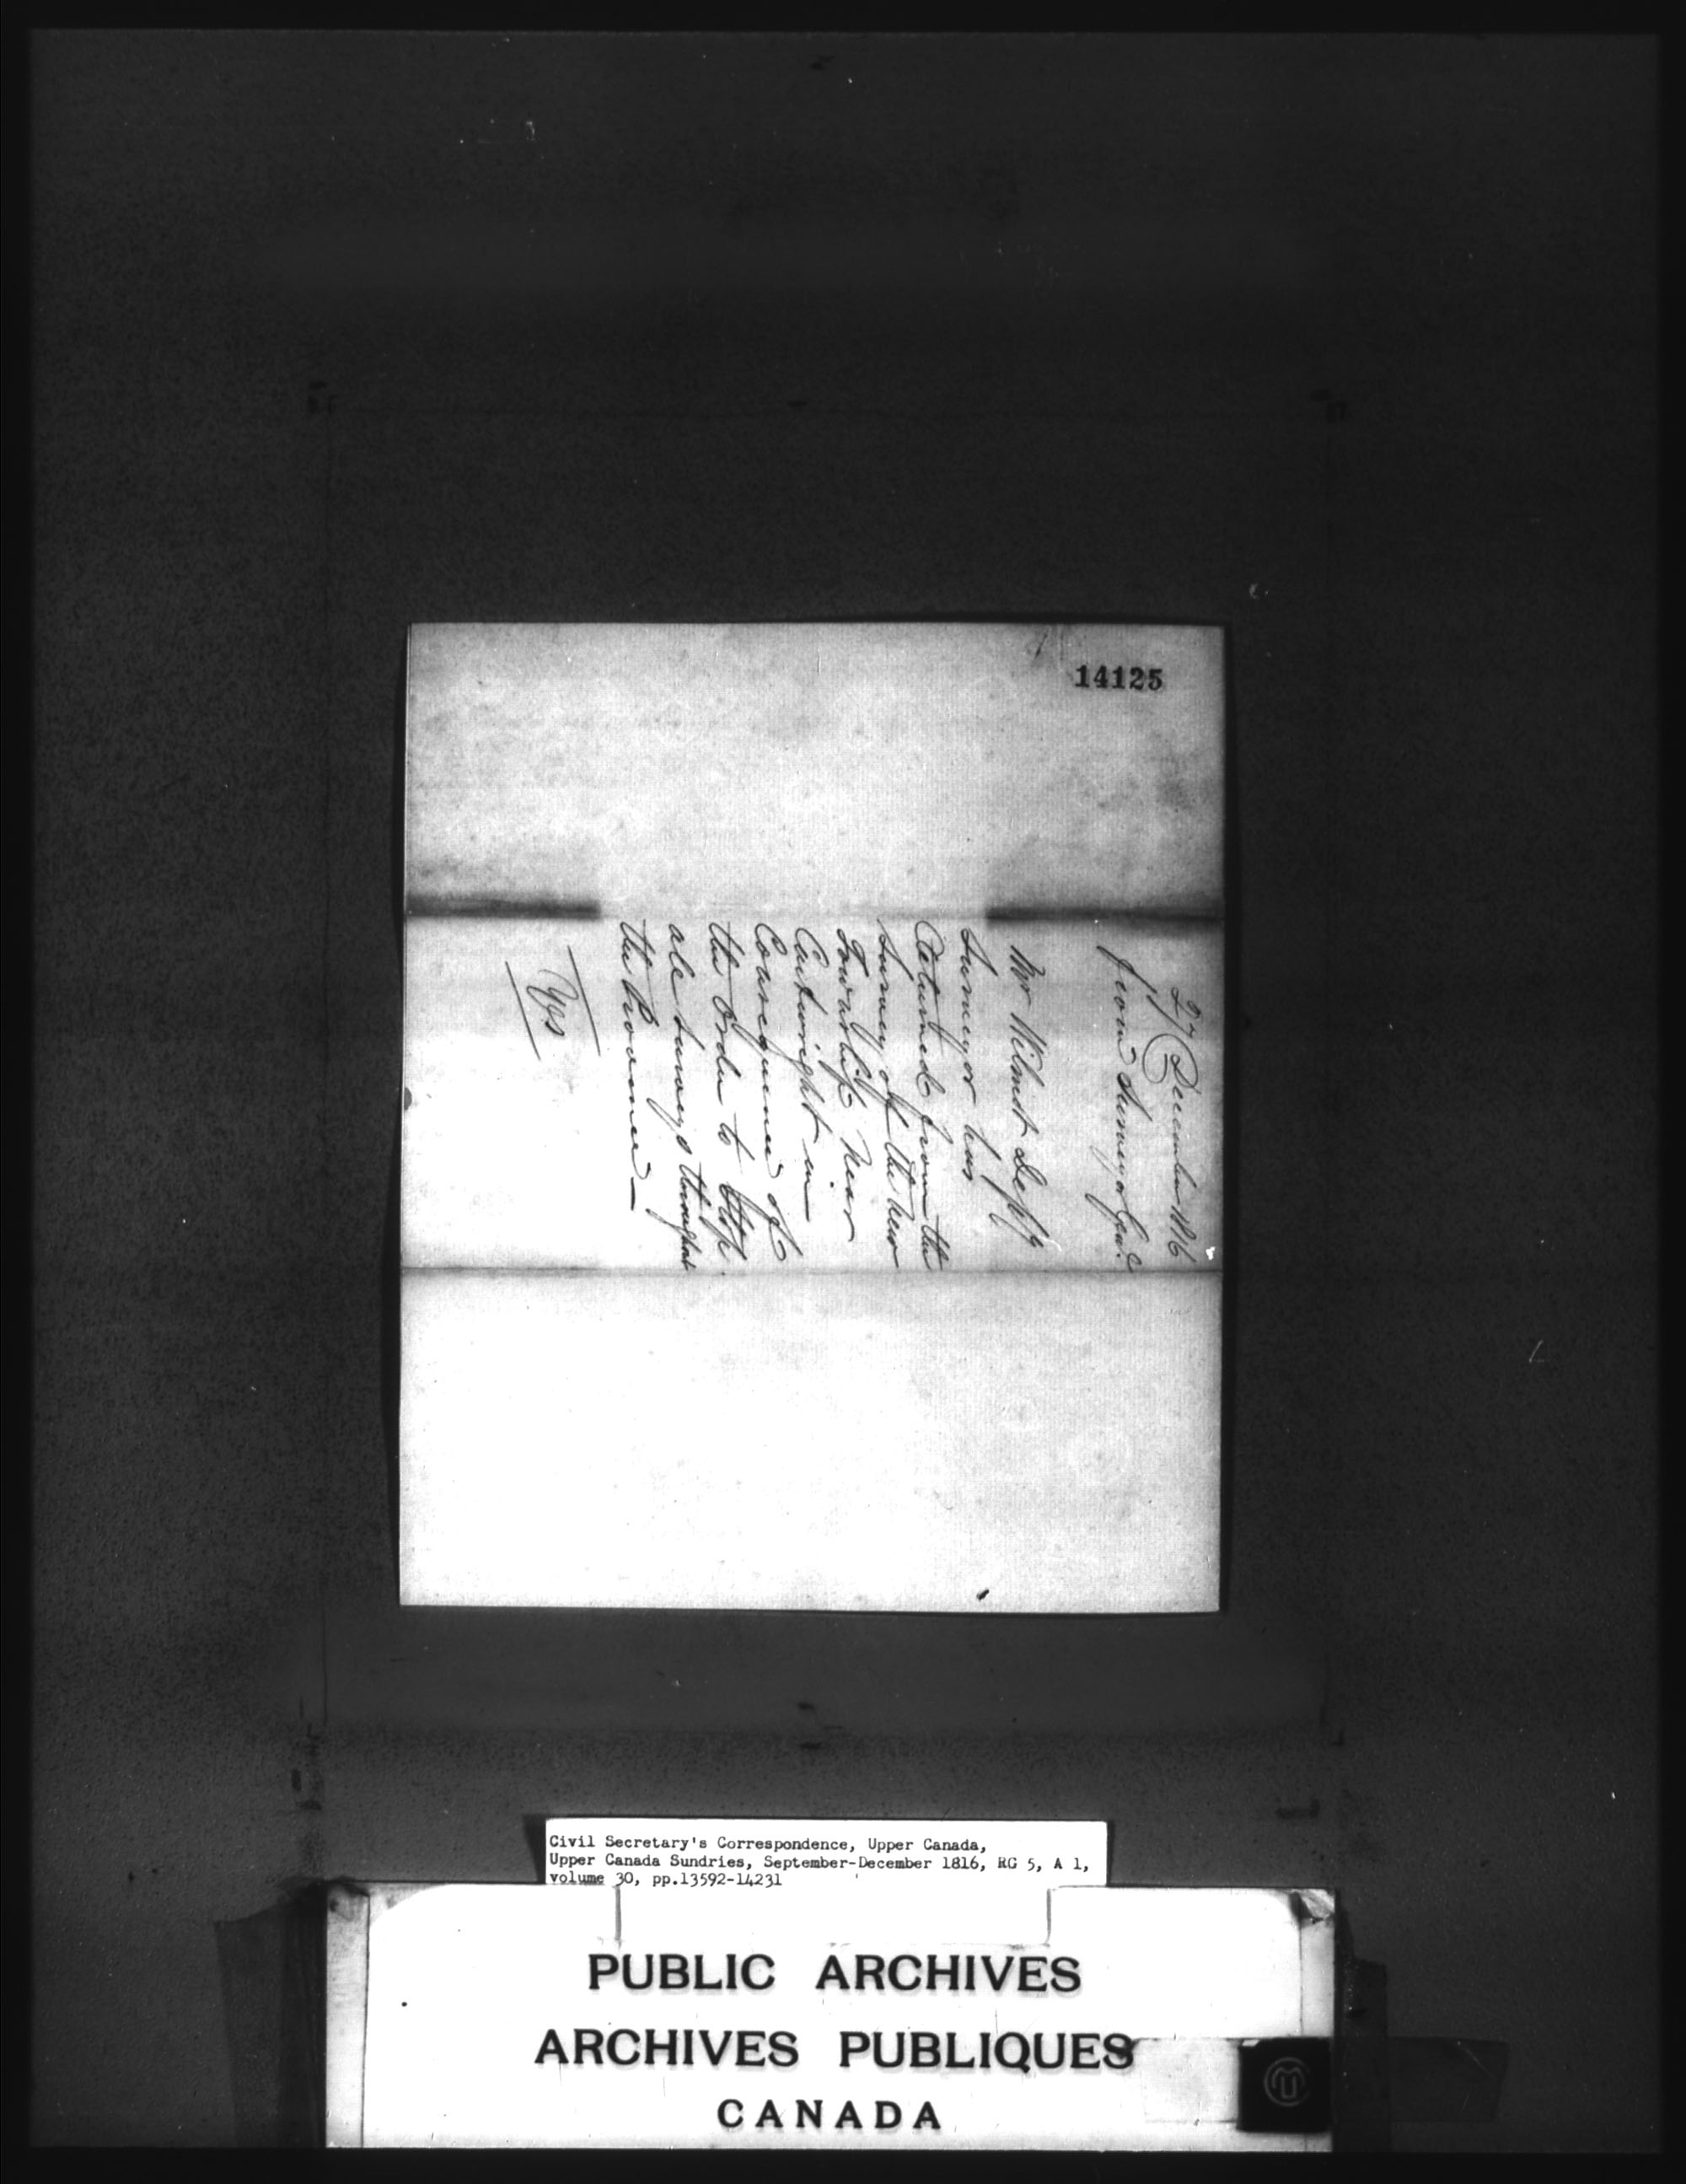 14125
27 December 1816
from Surveyor Genl
Mr Wilmot Depy
Surveyor has
Returned from the
Survey of the New
Township Near
Cartwright in
Consequence of
the Order to Stop
all Surveys throughout
the Province
Civil Secretary's Correspondence, Upper Canada,
Upper Canada Sundries, September-December 1816, RG 5, A 1,
volume 30, pp.13592-14231
PUBLIC ARCHIVES
ARCHIVES PUBLIQUES
CANADA